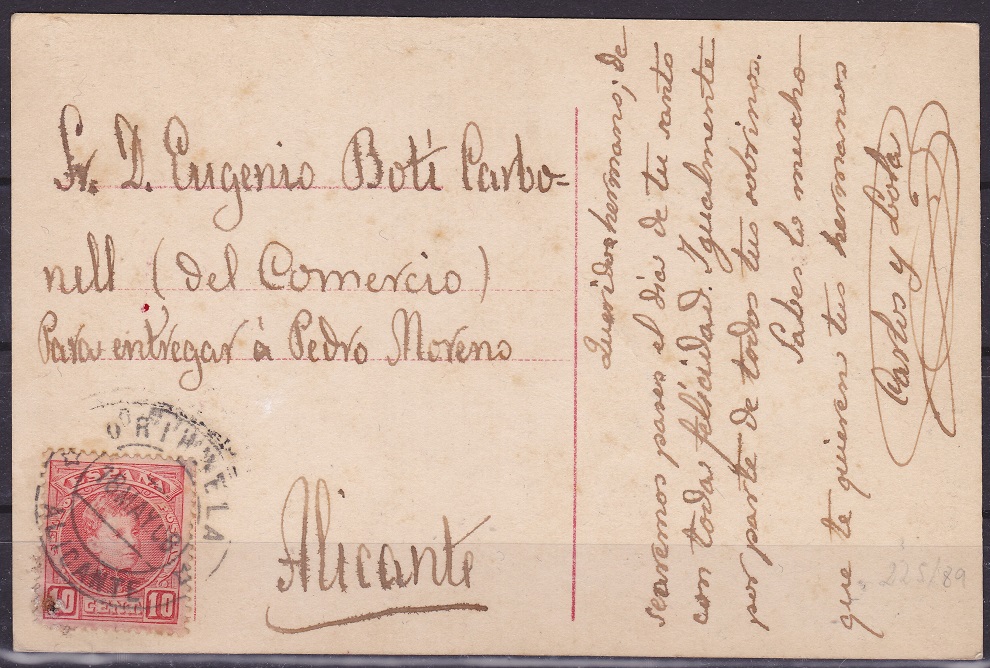 Sr. D. Eugenio Botí Carbo-
nell (del Comercio)
Para entregar á Pedro Moreno
Alicante
Querido hermano; de
searemos pases el dia de tu santo
con toda felicidad. Igualmente
por parte de todos tus sobrinos.
Sabes lo mucho
que te quieren tus hermanos
Carlos y Lola
ORIHUELA
ALICANTE
MAY 08
10 CENT 10
225/89